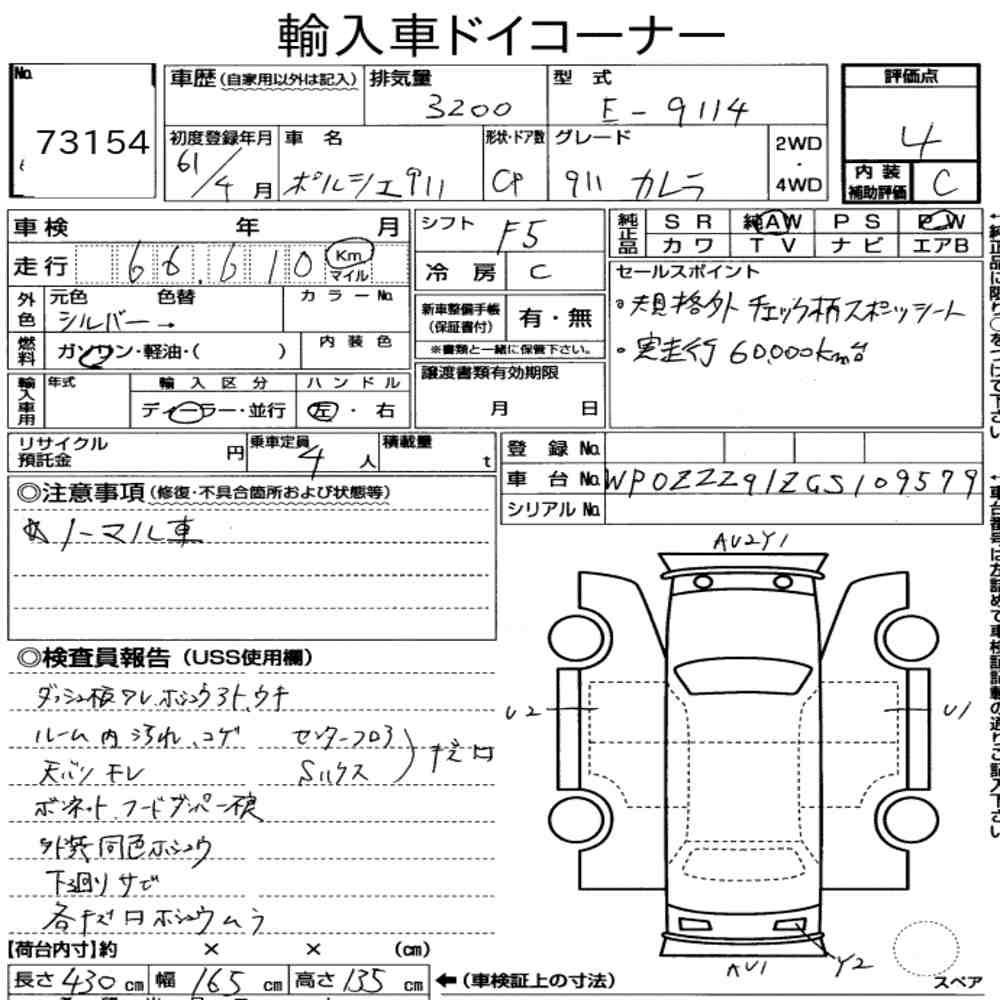 輸入車ドイコーナー
No. 73154
車歴(自家用以外は記入)
排気量 3200
型式 E-9114
初度登録年月 61/4月
車名 ポルシェ911
形状・ドア数 CP
グレード 911 カレラ
2WD・4WD
評価点 4
内装補助評価 C
車検 年 月
走行 66,610 Km マイル
シフト F5
冷房 C
純正品 SR 純AW PS PW
カワ TV ナビ エアB
外色 元色 色替 カラーNo.
シルバー→
燃料 ガソリン・軽油・( )
内装色
新車整備手帳(保証書付) 有・無
※書類と一緒に保管下さい。
セールスポイント
・規格外 チェック柄スポーツシート
・実走行 60,000km台
輸入車用 年式 輸入区分 ハンドル
ディーラー・並行 左・右
譲渡書類有効期限
月 日
リサイクル預託金 円
乗車定員 4人
積載量 t
登録No.
車台No. WP0ZZZ91ZGS109579
シリアルNo.
◎注意事項(修復・不具合箇所および状態等)
☆ノーマル車
◎検査員報告(USS使用欄)
ダッシュ板ワレ、ホシュウアト、ウキ
ルーム内汚れ、コゲ センターフロア
天バリキレ Sルクス
ボンネット、フードダンパー不良
外装同色ホシュウ
下廻りサビ
各キズ凹ホシュウムラ
キズ凹
AU2Y1
U2
U1
AU1
Y2
スペア
【荷台内寸】約 × × (cm)
長さ430cm 幅165cm 高さ135cm
←(車検証上の寸法)
←純正品に限り○をつけて下さい
←車台番号は左詰めで車検証記載の通りご記入下さい